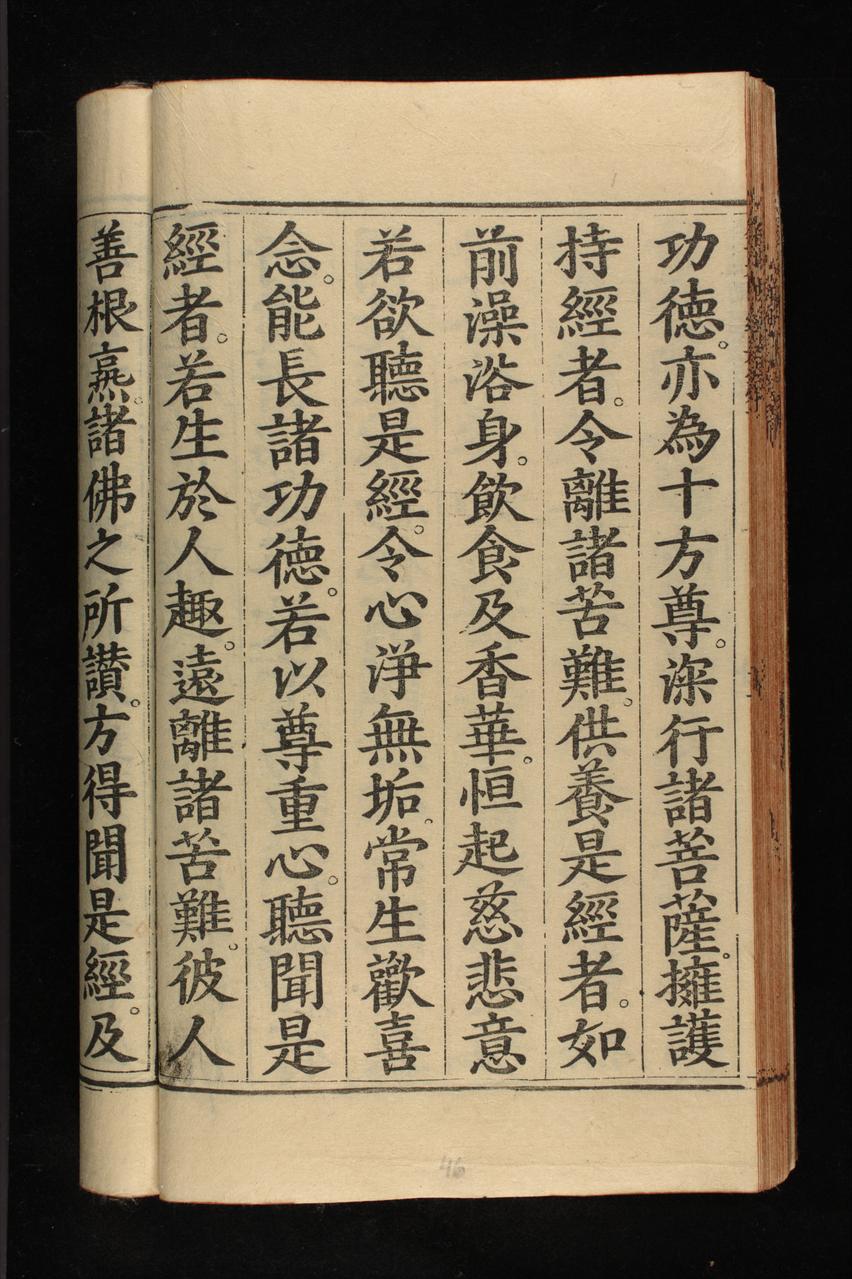 功德。亦為十方尊。深行諸菩薩。擁護
持經者。令離諸苦難。供養是經者。如
前澡浴身。飲食及香華。恒起慈悲意
若欲聽是經。令心淨無垢。常生歡喜
念。能長諸功德。若以尊重心。聽聞是
經者。若生於人趣。遠離諸苦難。彼人
善根熏。諸佛之所讚。方得聞是經。及
46